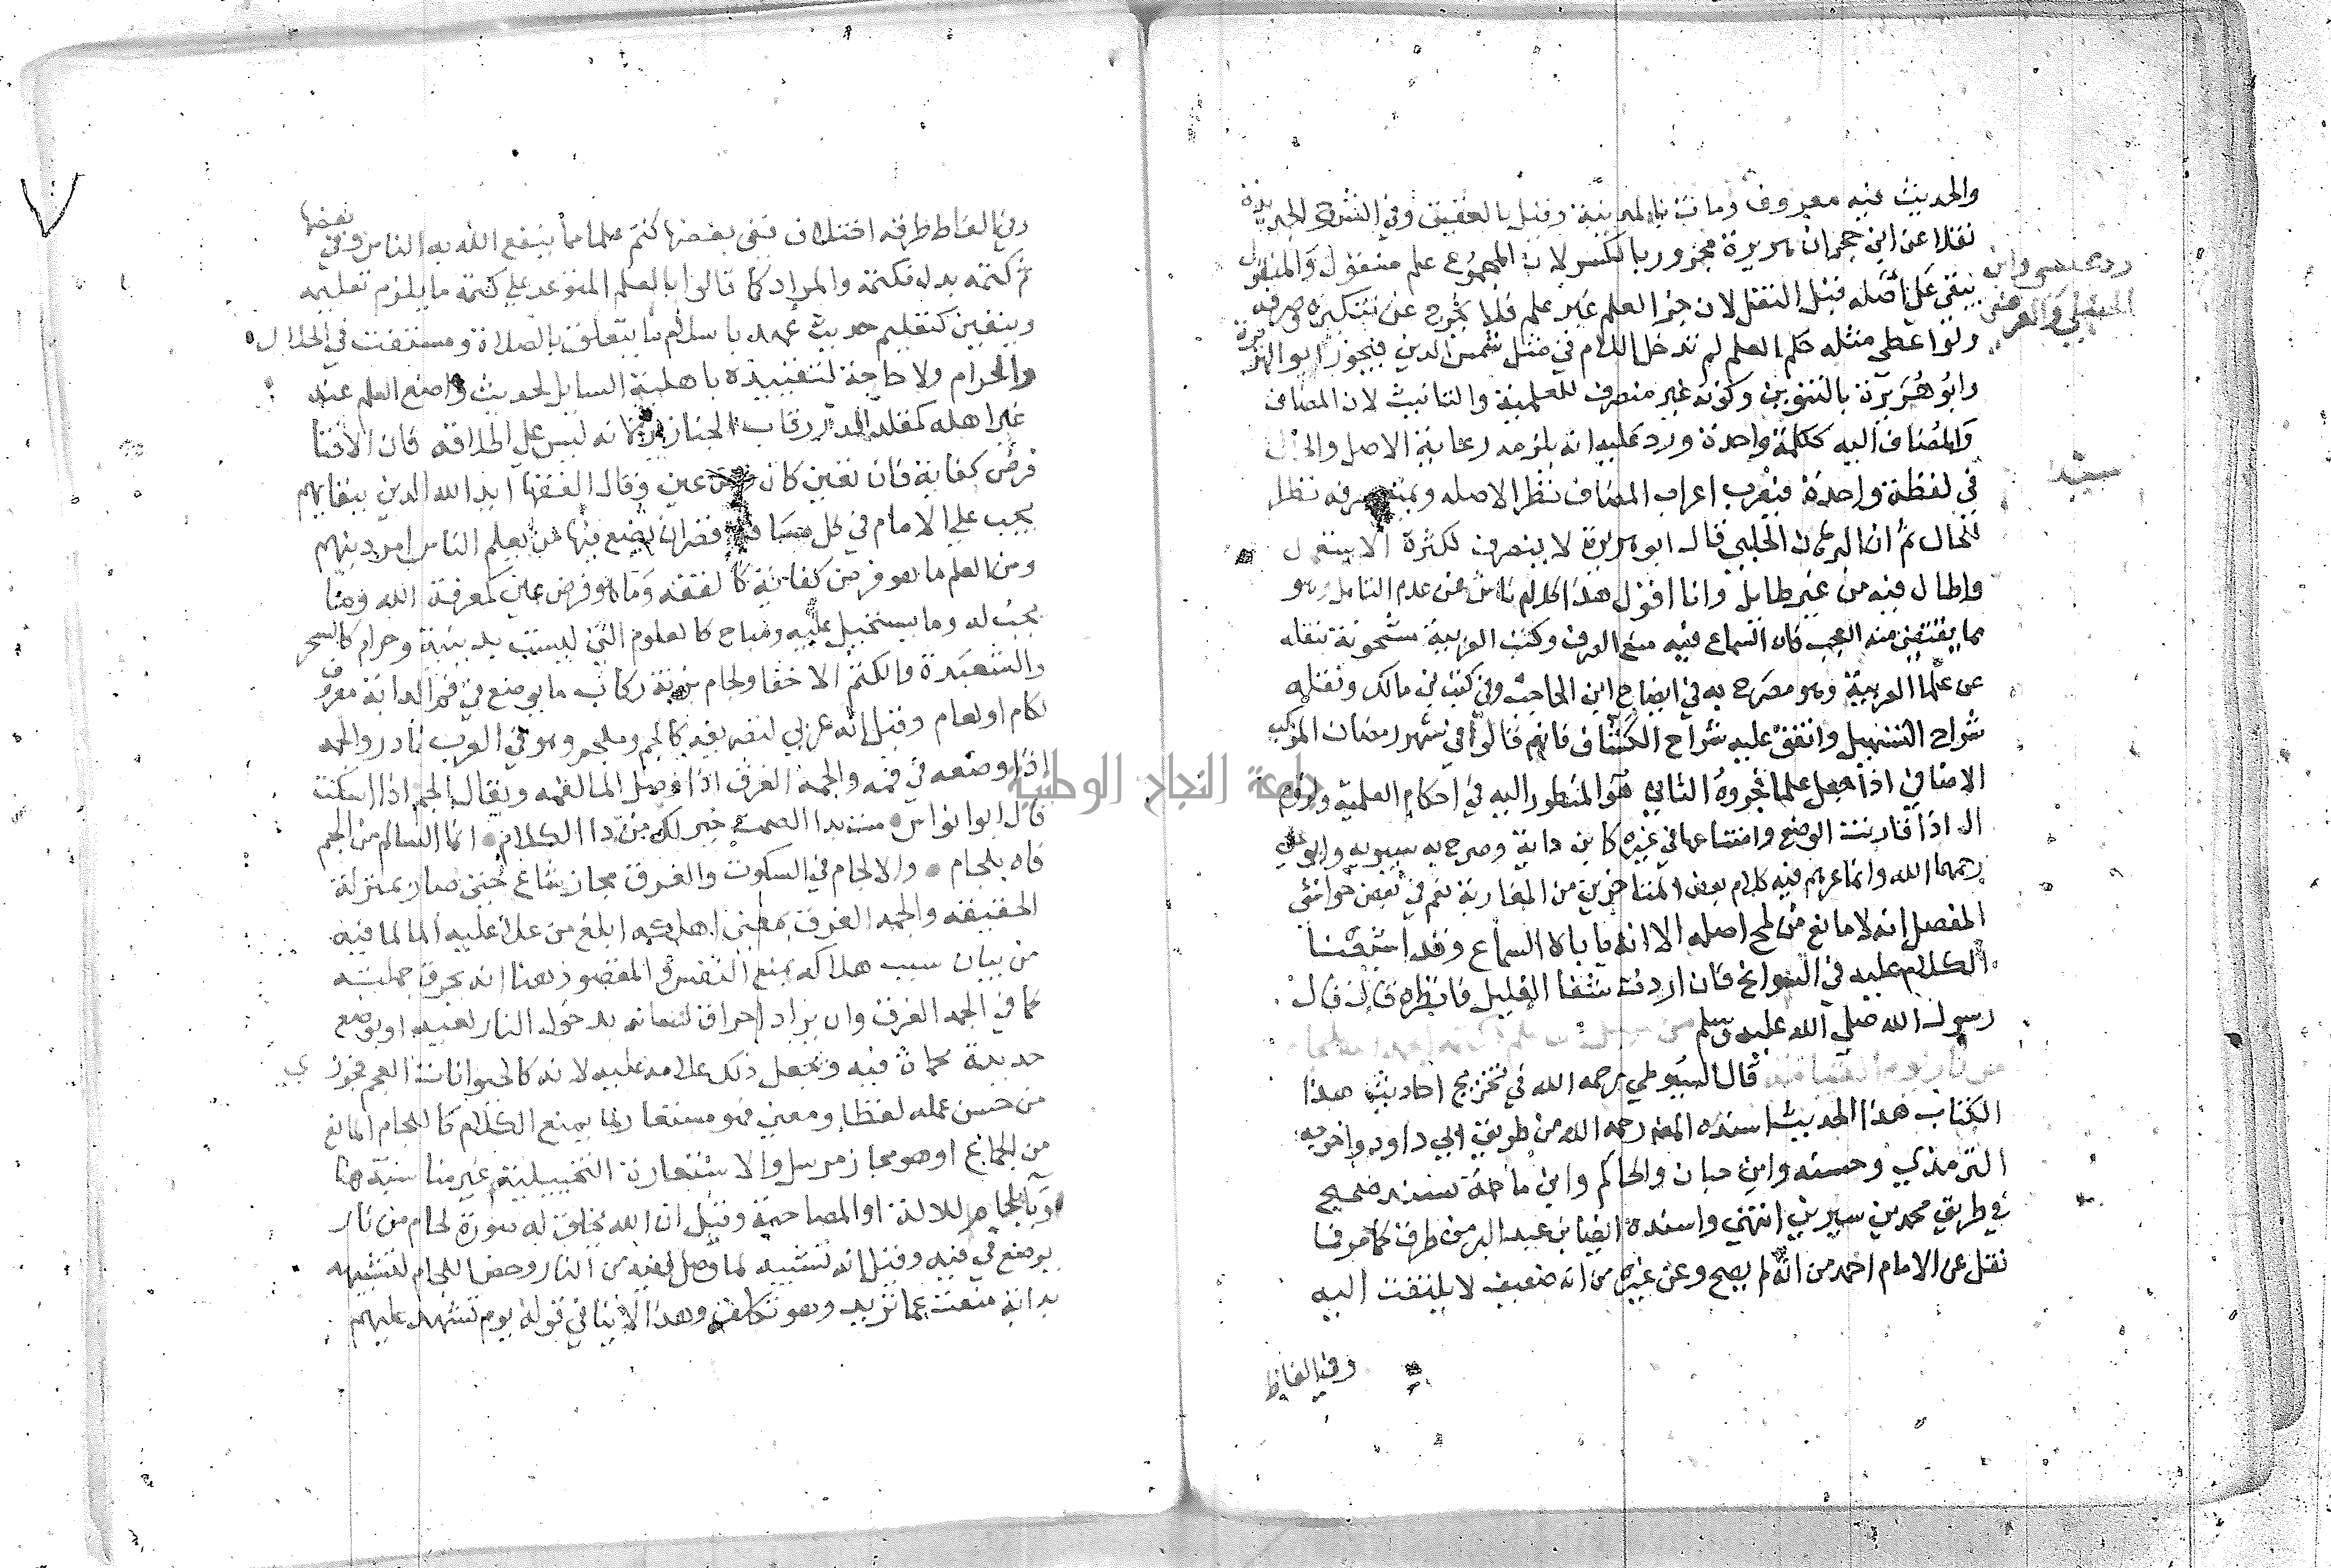 والحديث فيه معروف ومات بالمدينة وقيل بالعقيق وفي الشرح الجديدة
نقلا عن ابن حجر ان هريرة مجرور بالكسر لان المجموع علم منقول والمنقول
يبقى على أصله قبل النقل لان جزا العلم غير علم فلا يخرج عن تنكيره وصرفه
ولو اعطي مثله حكم العلم لم تدخل اللام في مثل شمس الدين فيجوز ابو الهريرة
وابو هُرَيرة بالتنوين وكونه غير منصرف للعلمية والتانيث لان المضاف
والمضاف اليه ككلمة واحدة ورد عليه انه يلزمه رعاية الاصل والحال
في لفظة واحدة فيعرب اعراب المضاف نظرا لاصله ويمتنع صرفه نظرا
للحال ثم ان البرهان الحلبي قال ابو هريرة لا ينصرف لكثرة الاستعمال
واطال فيه من غير طايل وانا اقول هذا كلام ناش عن عدم التامل وهو
مما يقتضي منه العجب فان السماع فيه منع الصرف وكتب العربية مشحونة بنقله
عن علما العربية وهو مصرح به في ايضاح ابن الحاجب وفي كتب ابن مالك ونقله
شراح التسهيل واتفق عليه شراح الكشاف فانهم قالوا في شهر رمضان المركب
الاضافي اذا جعل علما فجزوه الثاني هو المنظور اليه في احكام العلمية ولزوم
ال اذا قارنت الوضع وامتناعها في غيره كابن داية وصرح به سيبويه وابو علي
رحمهما الله وانما غرهم فيه كلام بعض المتاخرين من المغاربة نعم في بعض حواشي
المفصل انه لا مانع من لمح اصله الا انه ياباه السماع وقد اشبعنا
الكلام عليه في السوانح فان اردت شفا الغليل فانظره قال قال
رسول الله صلى الله عليه وسلم من سئل عن علم فكتمه الجمه الله بلجام
من نار يوم القيامة قال السيوطي رحمه الله في تخريج احاديث هذا
الكتاب هذا الحديث اسنده المص رحمه الله من طريق ابي داود واخرجه
الترمذي وحسنه وابن حبان والحاكم وابن ماجة بسند صحيح
في طريق محمد بن سيرين انتهى واسنده ايضا ابن عبد البر من طرق كما مر فما
نقل عن الامام احمد من انه لم يصح وعن غيره من انه ضعيف لا يلتفت اليه
وفي الفاظ
وفي الفاظ طرقه اختلاف ففي بعضها كتم علما مما ينفع الله به الناس وفي بعضها
ثم كتمه بدل فكتمه والمراد كما قالوا بالعلم المتوعد على كتمه ما يلزم تعليمه
ويتعين كتعليم حديث عهد باسلام ما يتعلق بالصلاة ومستفت في الحلال
والحرام ولا حاجة لتقييده باهلية السايل لحديث واضع العلم عند
غير اهله كمقلد الدر رقاب الخنازير لانه ليس على اطلاقه فان الافتا
فرض كفاية فان تعين كان فرض عين وقال الفقها ايد الله الدين ببقايهم
يجب على الامام في كل مسافة قصر ان يضع فيها من يعلم الناس امر دينهم
ومن العلم ما هو فرض كفاية كالفقه وما هو فرض عين كمعرفة الله وما
يجب له وما يستحيل عليه ومباح كالعلوم التي ليست بدينية وحرام كالسحر
والشعبذة والكتم الاخفا ولجام بزنة ركاب ما يوضع في فم الدابة معرف
لكام او لغام وقيل انه عربي لتصريفه كالجم وملجم وهو في العرب نادر والجمه
اذا وضعه في فمه والجمه الغرق اذا وصل الما لفمه ويقال الجم اذا اسكت
قال ابو نواس مت بدا الصمت خير لك من دا الكلام انما السالم من الجم
فاه بلجام والالجام في السكوت والغرق مجاز شاع حتى صار بمنزلة
الحقيقة والجمه الغرق بمعنى اهلكه ابلغ من علا عليه الما لما فيه
من بيان سبب هلاكه بمنع النفس والمقصود هنا انه يحرق جملته
كما في الجمه الغرق وان يزاد احراق لسانه بدخول النار لفيه او بوضع
حديدة محماة فيه وتجعل ذلك علامة عليه لانه كالحيوانات العجم فجوزي
من حسن عمله لفظا ومعنى فهو مستعار لما يمنع الكلام كاللجام المانع
من الجماح او هو مجاز مرسل والاستعارة التخييلية غير مناسبة هنا
وبا بلجام للالة او المصاحبة وقيل ان الله يخلق له صورة لجام من نار
يوضع في فيه وقيل انه تشبيه لما وصل لفيه من النار وخص اللجام لتشبيهه
بدابة منعت عما تريد وهو تكلف وهذا لا ينافي قوله يوم تشهد عليهم
جامعة النجاح الوطنية